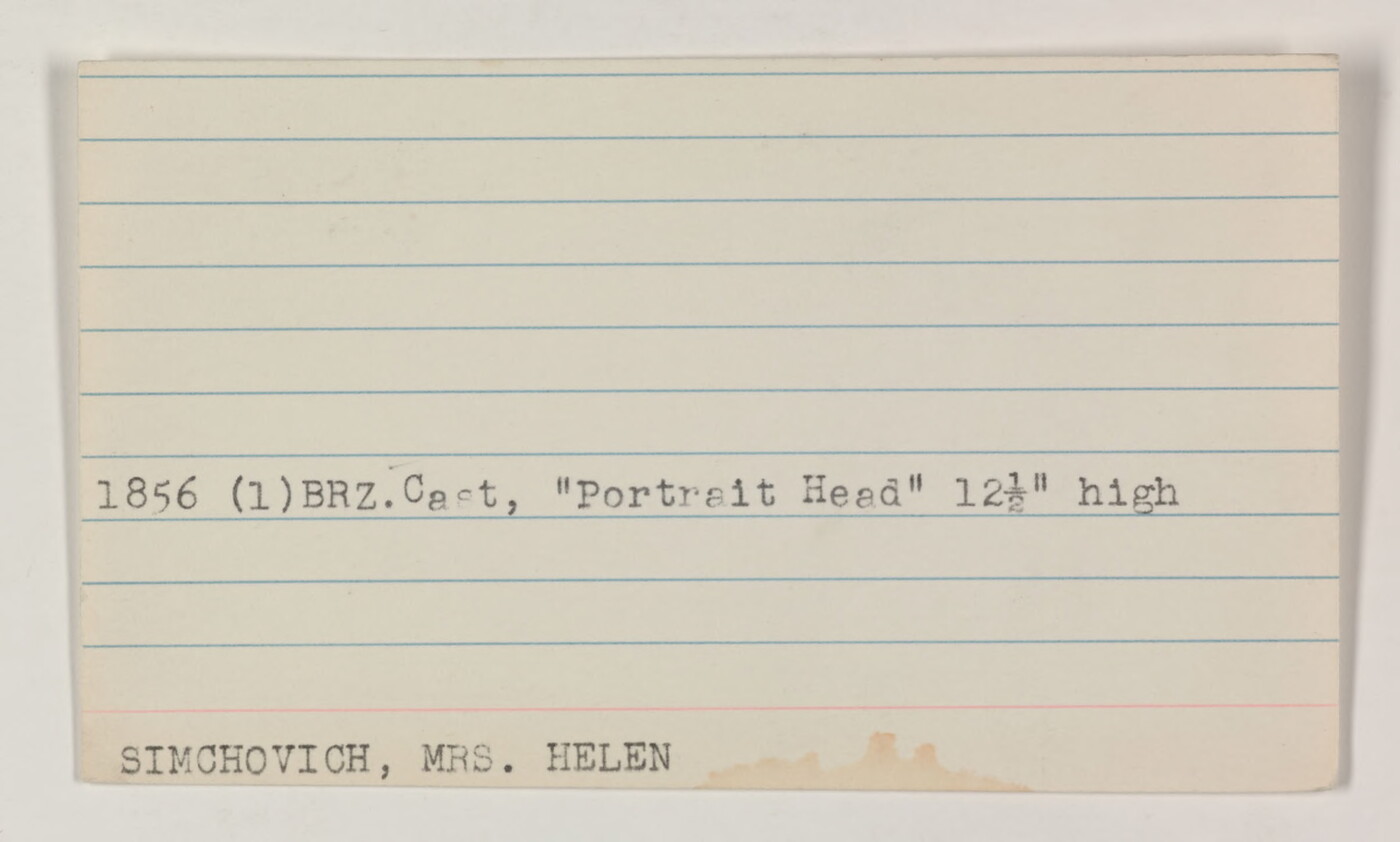 1856 (1)BRZ.Cast, "Portrait Head" 12½" high
SIMCHOVICH, MRS. HELEN